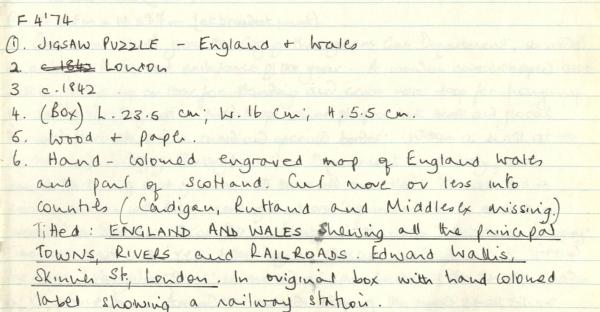 F 4'74
1. JIGSAW PUZZLE - England + Wales
2 c.1842 London
3 c.1842
4. (Box) L. 23.5 cm; W. 16 cm; H. 5.5 cm.
5. Wood + paper.
6. Hand-coloured engraved map of England Wales
and part of Scotland. Cut more or less into
counties (Cardigan, Rutland and Middlesex missing.)
Titled: ENGLAND AND WALES Shewing all the principal
TOWNS, RIVERS and RAILROADS. Edward Wallis,
Skinner St, London. In original box with hand coloured
label showing a railway station.